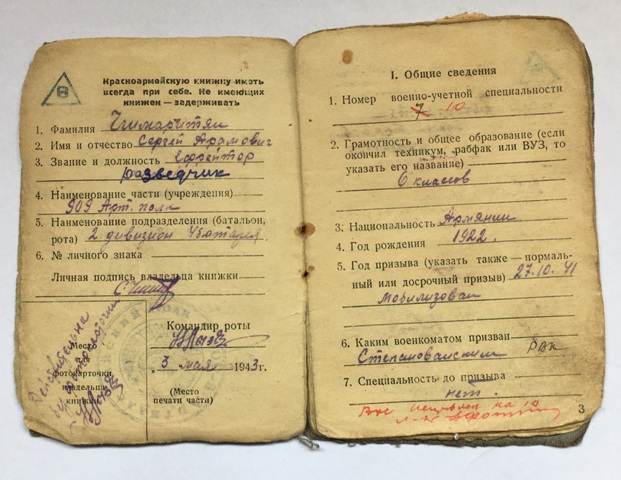 В
Красноармейскую книжку иметь
всегда при себе. Не имеющих
книжек — задерживать
1. Фамилия
2. Имя и отчество Сергей Арамович
3. Звание и должность Ефрейтор
разведчик
4. Наименование части (учреждения)
909 Арт. полк
5. Наименование подразделения (батальон,
рота) 2 дивизион 4 батарея
6. № личного знака
Личная подпись владельца книжки
Командир роты
3 мая 1943 г.
Место
для
фотокарточки
владельца
книжки
(Место
печати части)
I. Общие сведения
1. Номер военно-учетной специальности
7 10
2. Грамотность и общее образование (если
окончил техникум, рабфак или ВУЗ, то
указать его название)
6 классов
3. Национальность Армянин
4. Год рождения 1922.
5. Год призыва (указать также — нормаль-
ный или досрочный призыв) 27.10.41
мобилизован
6. Каким военкоматом призван
Степанованским РВК
7. Специальность до призыва
нет.
3